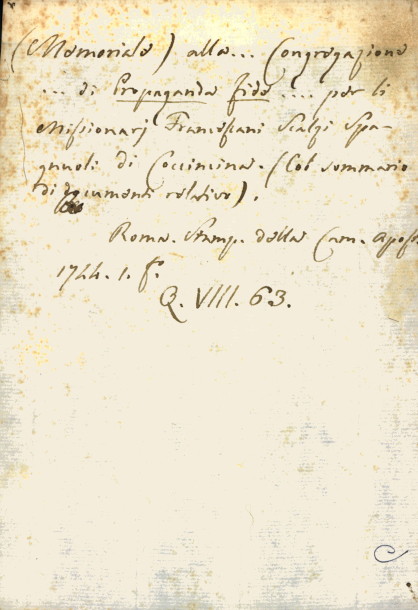 (Memoriale) alla... Congregazione
... di Propaganda fide .... per li
Missionarj Francescani Scalzi Spa-
gnuoli di Coccincina. (Col sommario
di documenti relativo).
Roma. Stamp. della Cam. Apost.
1744. 1. f.º
Q. VIII. 63.